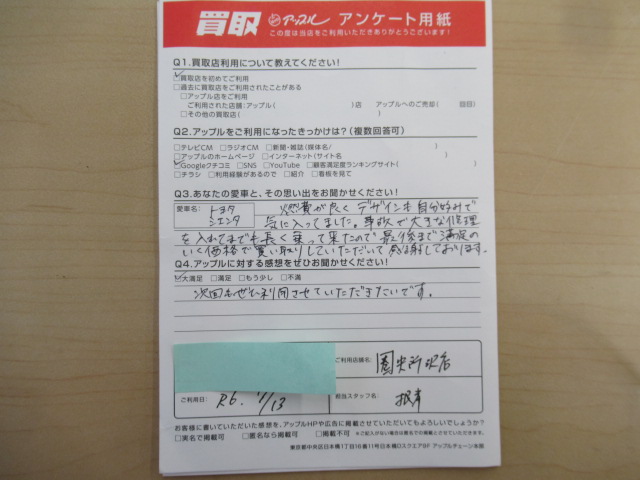 買取 アップル アンケート用紙
この度は当店をご利用いただきありがとうございます!
Q1.買取店利用について教えてください!
☑買取店を初めてご利用
□過去に買取店をご利用されたことがある
□アップル店をご利用
ご利用された店舗:アップル( )店 アップルへのご売却( 回目)
□その他の買取店( )
Q2.アップルをご利用になったきっかけは?(複数回答可)
□テレビCM □ラジオCM □新聞・雑誌(媒体名/ )
□アップルのホームページ □インターネット(サイト名 )
☑Googleクチコミ □SNS □YouTube □顧客満足度ランキングサイト( )
□チラシ □利用経験があるので □紹介 □看板を見て
Q3.あなたの愛車と、その思い出をお聞かせください!
愛車名: トヨタ シエンタ
燃費が良くデザインも自分好みで
気に入ってました。事故で大きな修理
を入れてまでも長く乗って来たので最後まで満足の
いく価格で買い取りしていただいて感謝しております。
Q4.アップルに対する感想をぜひお聞かせください!
☑大満足 □満足 □もう少し □不満
次回もぜひ利用させていただきたいです。
ご利用店舗名: 圏央所沢店
ご利用日: R6. 1/13
担当スタッフ名: 根岸
お客様に書いていただいた感想を、アップルHPや広告に掲載させていただいてもよろしいでしょうか?
□実名で掲載可 □匿名なら掲載可 □掲載不可 ※ご記入がない場合は匿名での掲載とさせていただきます。
東京都中央区日本橋1丁目16番11号日本橋Dスクエア8F アップルチェーン本部